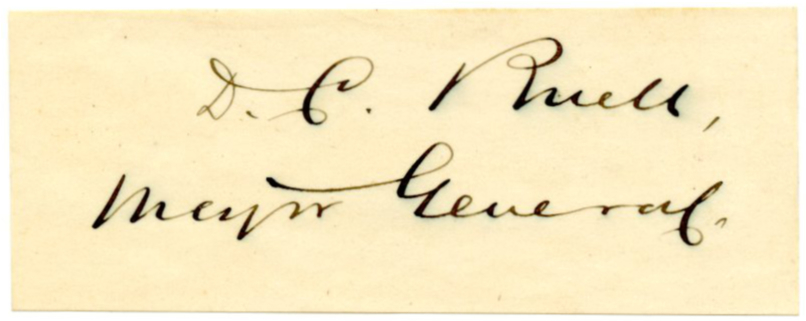 D. C. Buell,
Major General.